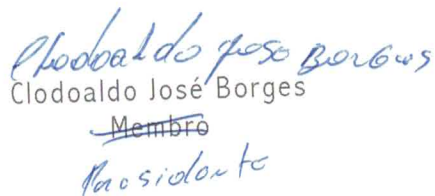 Clodoaldo José Borges
Clodoaldo José Borges
Membro
Presidente